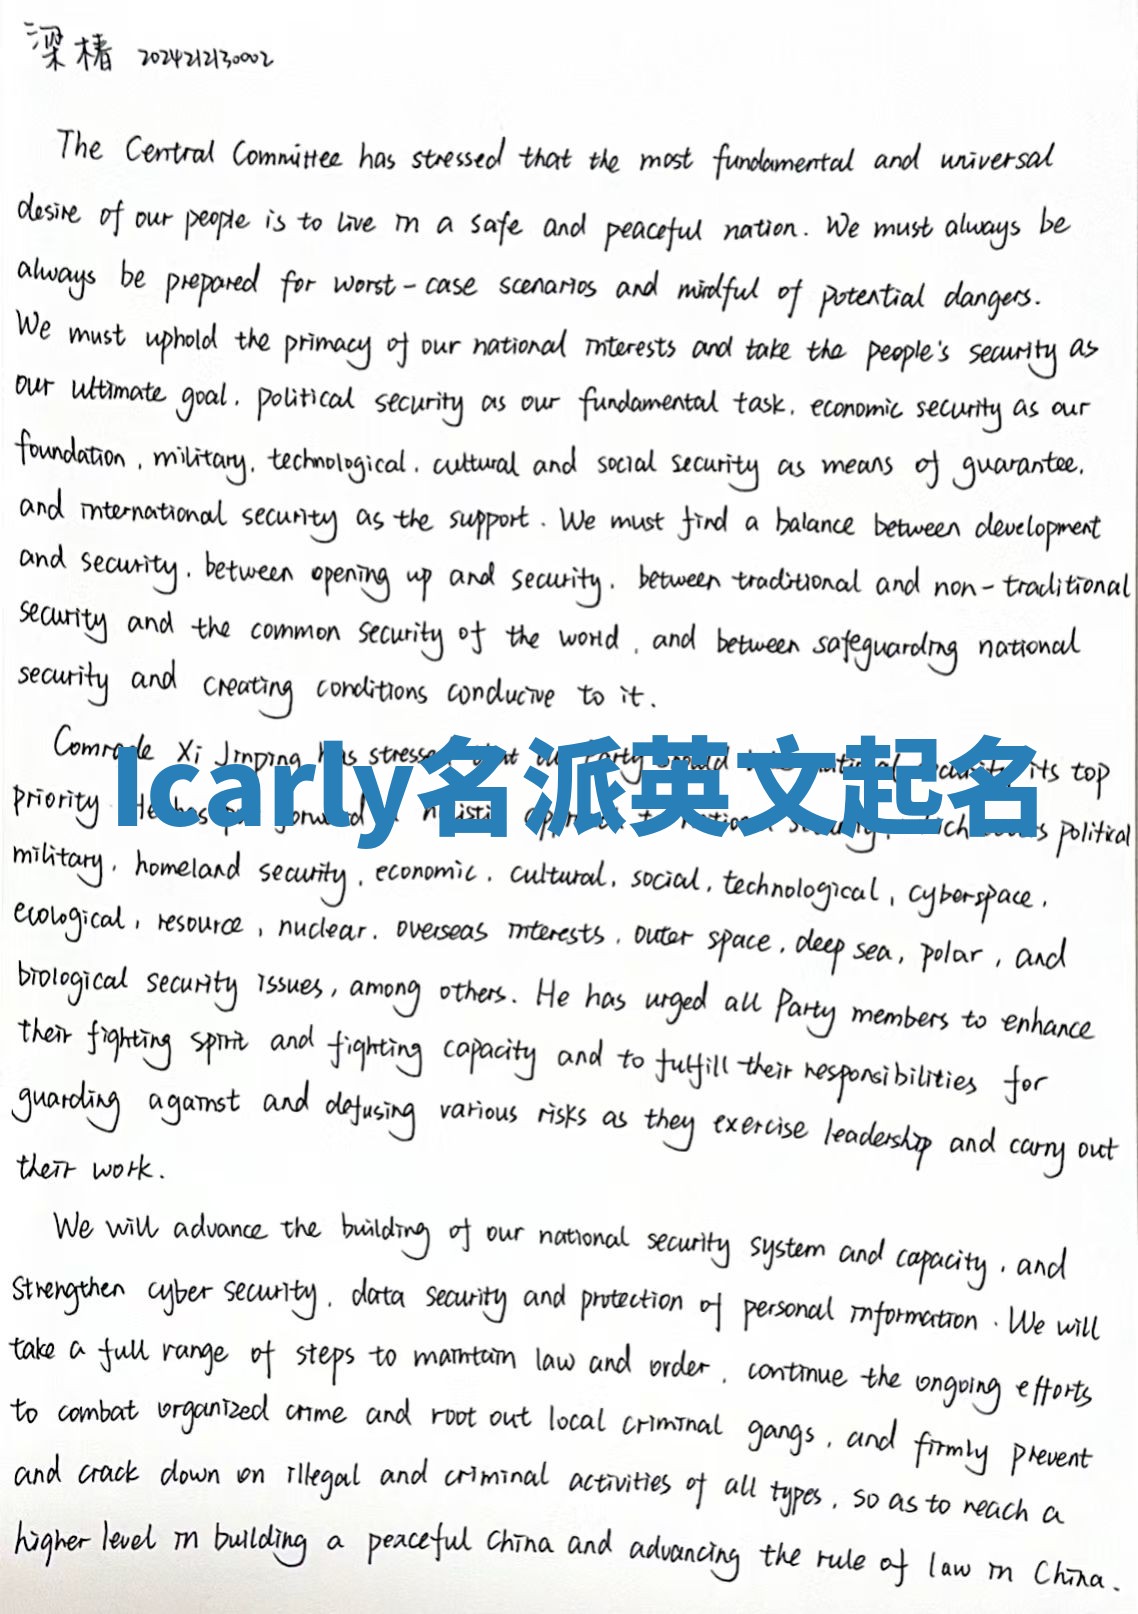 梁椿 2024212130002
The Central Committee has stressed that the most fundamental and universal
desire of our people is to live in a safe and peaceful nation. We must always be
always be prepared for worst-case scenarios and mindful of potential dangers.
We must uphold the primacy of our national interests and take the people's security as
our ultimate goal, political security as our fundamental task, economic security as our
foundation, military, technological, cultural and social security as means of guarantee,
and international security as the support. We must find a balance between development
and security, between opening up and security, between traditional and non-traditional
security and the common security of the world, and between safeguarding national
security and creating conditions conducive to it.
Comrade Xi Jinping has stressed that our Party should national security its top
Icarly名派英文起名
priority. He has forward holistic to national security, which covers political
military, homeland security, economic, cultural, social, technological, cyberspace,
ecological, resource, nuclear, overseas interests, outer space, deep sea, polar, and
biological security issues, among others. He has urged all Party members to enhance
their fighting spirit and fighting capacity and to fulfill their responsibilities for
guarding against and defusing various risks as they exercise leadership and carry out
their work.
We will advance the building of our national security system and capacity, and
strengthen cyber security, data security and protection of personal information. We will
take a full range of steps to maintain law and order, continue the ongoing efforts
to combat organized crime and root out local criminal gangs, and firmly prevent
and crack down on illegal and criminal activities of all types, so as to reach a
higher level in building a peaceful China and advancing the rule of law in China.